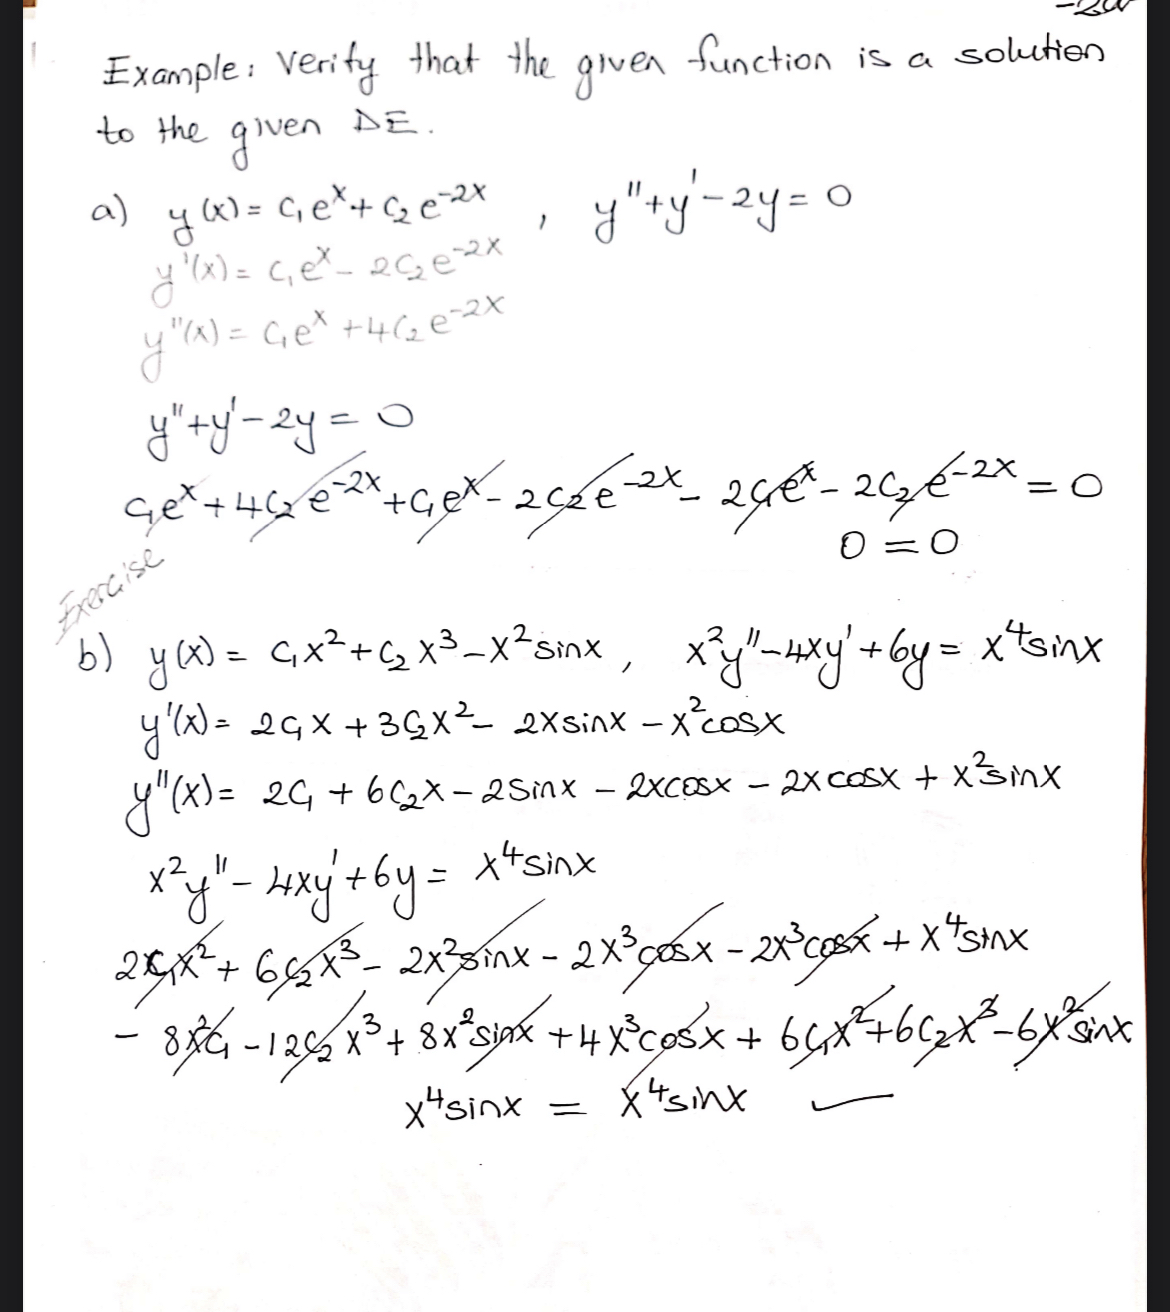 Example: Verify that the given function is a solution
to the given DE.
a) y(x) = c₁eˣ + c₂e⁻²ˣ , y'' + y' - 2y = 0
y'(x) = c₁eˣ - 2c₂e⁻²ˣ
y''(x) = c₁eˣ + 4c₂e⁻²ˣ
y'' + y' - 2y = 0
c₁eˣ + 4c₂e⁻²ˣ + c₁eˣ - 2c₂e⁻²ˣ - 2c₁eˣ - 2c₂e⁻²ˣ = 0
0 = 0
Exercise
b) y(x) = c₁x² + c₂x³ - x²sinx , x²y'' - 4xy' + 6y = x⁴sinx
y'(x) = 2c₁x + 3c₂x² - 2xsinx - x²cosx
y''(x) = 2c₁ + 6c₂x - 2sinx - 2xcosx - 2xcosx + x²sinx
x²y'' - 4xy' + 6y = x⁴sinx
2c₁x² + 6c₂x³ - 2x²sinx - 2x³cosx - 2x³cosx + x⁴sinx
- 8x²c₁ - 12c₂x³ + 8x²sinx + 4x³cosx + 6c₁x² + 6c₂x³ - 6x²sinx
x⁴sinx = x⁴sinx